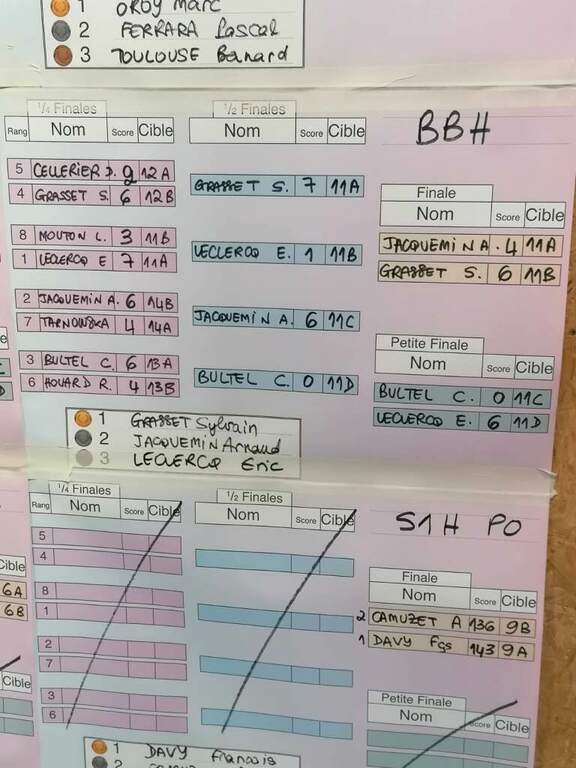 1 OROY Marc
2 FERRARA Pascal
3 TOULOUSE Benard
1/4 Finales
Rang Nom Score Cible
5 CELLERIER D. 2 12A
4 GRASSET S. 6 12B
8 MOUTON L. 3 11B
1 LECLERCQ E 7 11A
2 JACQUEMIN A. 6 14B
7 TARNOWSKA 4 14A
3 BULTEL C. 6 13A
6 HOUARD R. 4 13B
1/2 Finales
Nom Score Cible
GRASSET S. 7 11A
LECLERCQ E. 1 11B
JACQUEMIN A. 6 11C
BULTEL C. 0 11D
BBH
Finale
Nom Score Cible
JACQUEMIN A. 4 11A
GRASSET S. 6 11B
Petite Finale
Nom Score Cible
BULTEL C. 0 11C
LECLERCQ E. 6 11D
1 GRASSET Sylvain
2 JACQUEMIN Arnaud
3 LECLERCQ Eric
1/4 Finales
Rang Nom Score Cible
5
4
8
1
2
7
3
6
1/2 Finales
Nom Score Cible
S1H PO
Finale
Nom Score Cible
2 CAMUZET A 136 9B
1 DAVY Fçs 143 9A
Petite Finale
Nom Score Cible
1 DAVY Francois
2
6A
6B
Cible